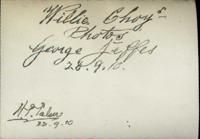 Willie Choy's
Photos
George Jeffes
22.9.10.
H.P. Palmer
22.9.10